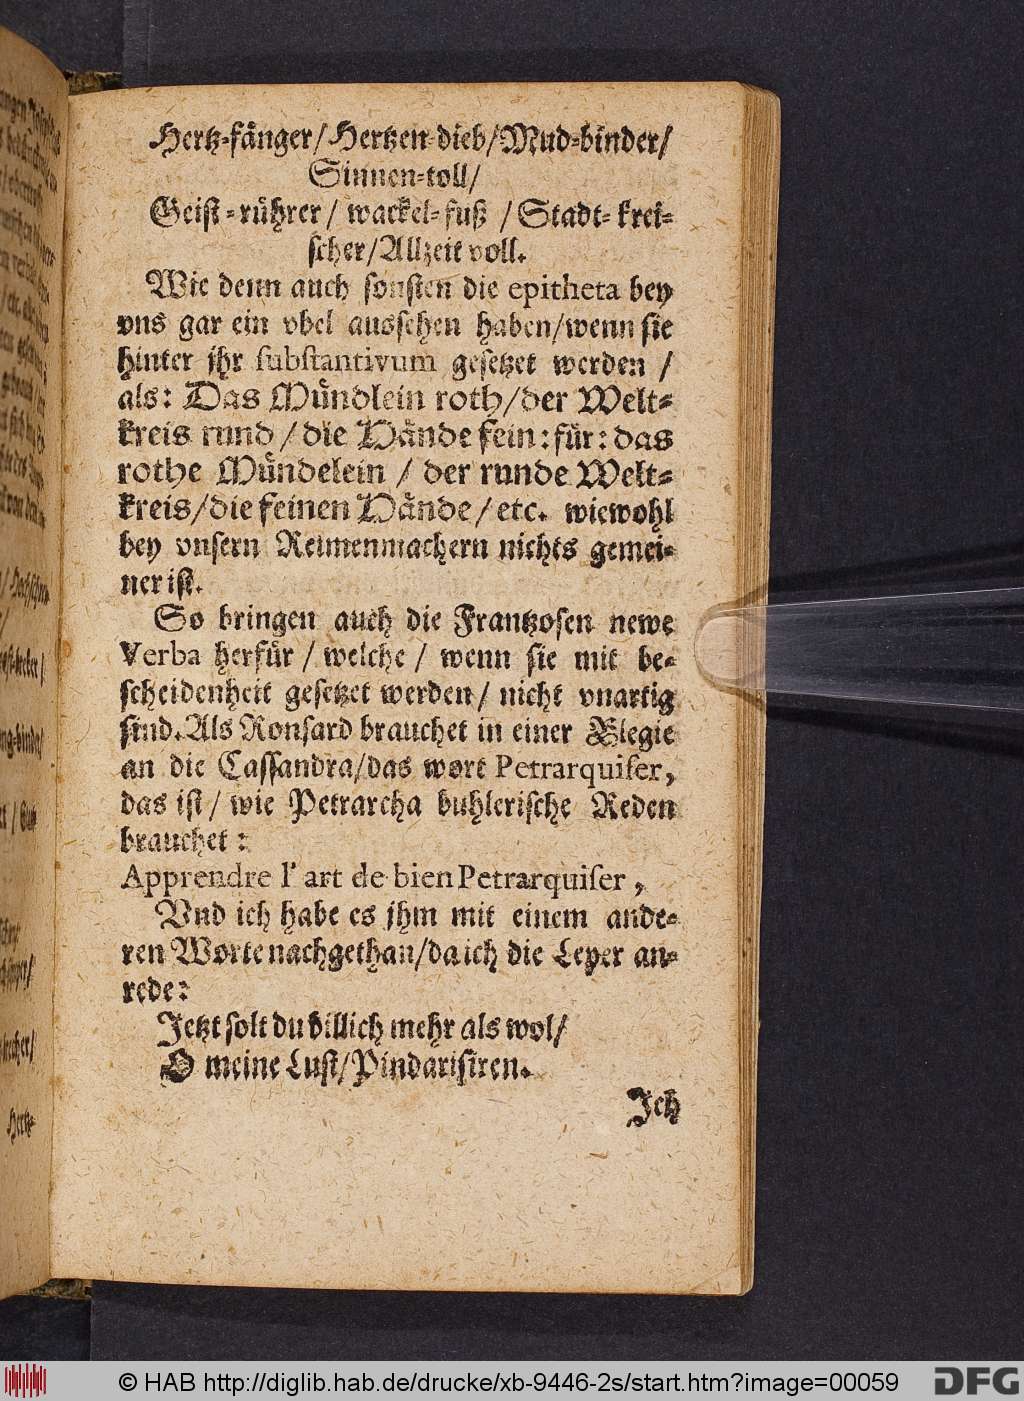 Hertz-fånger/Hertzen-dieb/Mud-binder/
Sinnen-toll/
Geist-růhrer/ wackel-fuß /Stadt-krei-
scher/Allzeit voll.
Wie denn auch sonsten die epitheta bey
vns gar ein vbel aussehen haben/wenn sie
hinter jhr substantivum gesetzet werden /
als: Das Můndlein roth/der Welt-
kreis rund /die Hånde fein: fůr: das
rothe Můndelein / der runde Welt-
kreis/die feinen Hånde/ etc. wiewohl
bey vnsern Reimenmachern nichts gemei-
ner ist.
So bringen auch die Frantzosen newe
Verba herfůr / welche / wenn sie mit be-
scheidenheit gesetzet werden/ nicht vnartig
sind. Als Ronsard brauchet in einer Elegie
an die Cassandra/das wort Petrarquiser,
das ist / wie Petrarcha buhlerische Reden
brauchet:
Apprendre l' art de bien Petrarquiser,
Vnd ich habe es jhm mit einem ande-
ren Worte nachgethan/da ich die Leyer an-
rede:
Jetzt solt du billich mehr als wol/
O meine Lust/Pindarisiren.
Jch
Hertz-
© HAB http://diglib.hab.de/drucke/xb-9446-2s/start.htm?image=00059
DFG